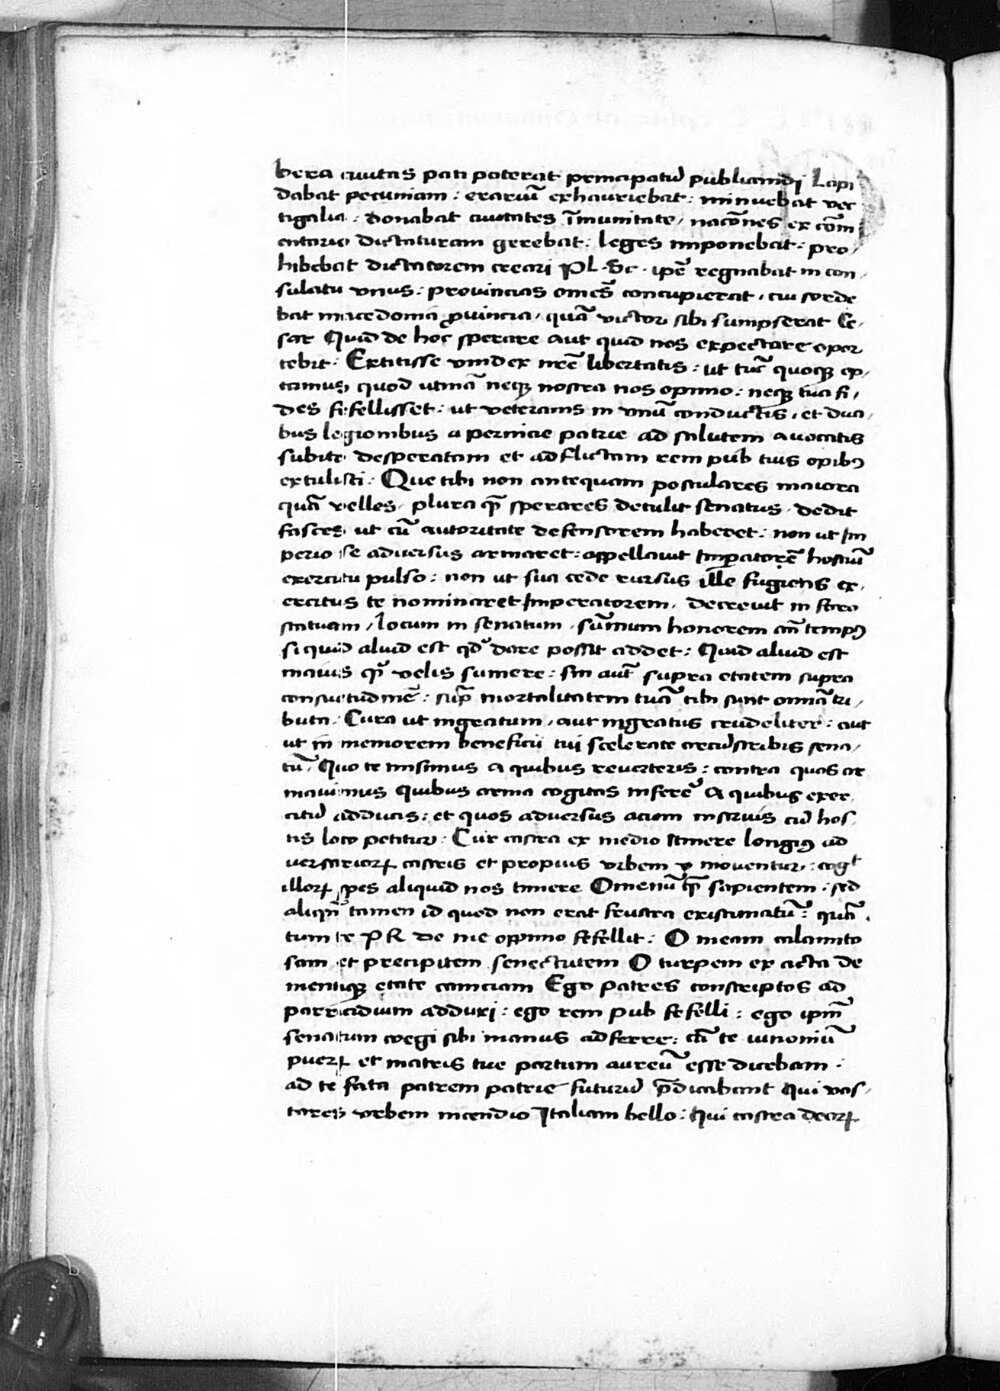 bera civitas pati poterat principatū publicandi Lapi
dabat pecuniam : erariū exhauriebat : minuebat vec
tigalia : donabat civitates īmunitate , nacōnes ex cōm
entario dictaturam gerebat : leges imponebat : pro,
hibebat dictatorem creari PL. Sc. ipē regnabat in con,
sulatu unius : provincias omēs concupierat , cui sorde
bat macedonia ꝓvincia , quā victor sibi sumpserat Ce,
sar Quid de hoc sperare aut quid nos expectare opor
tebit : Extitisse vindex nrē libertatis : ut tūc quoqꝫ op,
tamus, quod utinā neqꝫ nostra nos opinio : neqꝫ tua fi,
des fefellisset : ut veteranis in unū conductis , et dua,
bus legionibus a pernicie patrie ad salutem avocatis
subito desperatam et adflictam rem pub tuis opibꝰ
extulisti : Que tibi non antequam postulares maiora
quā velles , plura qꝫ sperares detulit senatus , dedit
fasces, ut cū autoritate defensorem haberet : non ut Im
perio se adversus armaret : appellavit Imperatorē hostiū
exercitu pulso : non ut sua cede rursus ille fugiens ex,
ercitus te nominaret Imperatorem , decrevit in foro
statuam , locum in senatum , sūmum honorem an̄ tempꝰ
si quid aliud est qd' dare possit addet : Quid aliud est
maius qꝫ velis sumere : sin aut' supra etatem supra
consuetudinē : sup̄ mortalitatem tuā tibi sunt omīa tri,
buta . Cura ut ingratum , aut ingratus crudeliter : aut
ut in memorem beneficii tui scelerate circūscribis sena,
tū , Quo te misimus A quibus reverteris : contra quos ar
mavimus Quibus arma cogitas inferre A quibus exer,
citū adducis : et quos adversus aciem instruis cur hos,
tis loco petitur : Cur castra ex medio itinere longiꝰ ad
versarioꝝ castris et propius urbem moventur : cogt
illoꝝ spes aliquid nos timere O menū qꝫ sapientem : sed
aliqn̄ tamen id quod non erat frustra existimatū : quā ,
tum te P R de me opinio fefellit : O meam calamito
sam et precipitem senectutem O turpem ex acta de
mentiqꝫ etate caniciam Ego patres conscriptos ad
parricidium adduxi : ego rem pub fefelli : ego ipm̄
senatum coegi sibi manus adferre : cū te iunoniū
pueꝝ et matris tue partum aureū esse dicebam :
ad te fata patrem patrie futurū p̄dicabant Qui vas,
tares urbem incendio Italiam bello : Qui castra deoꝝ